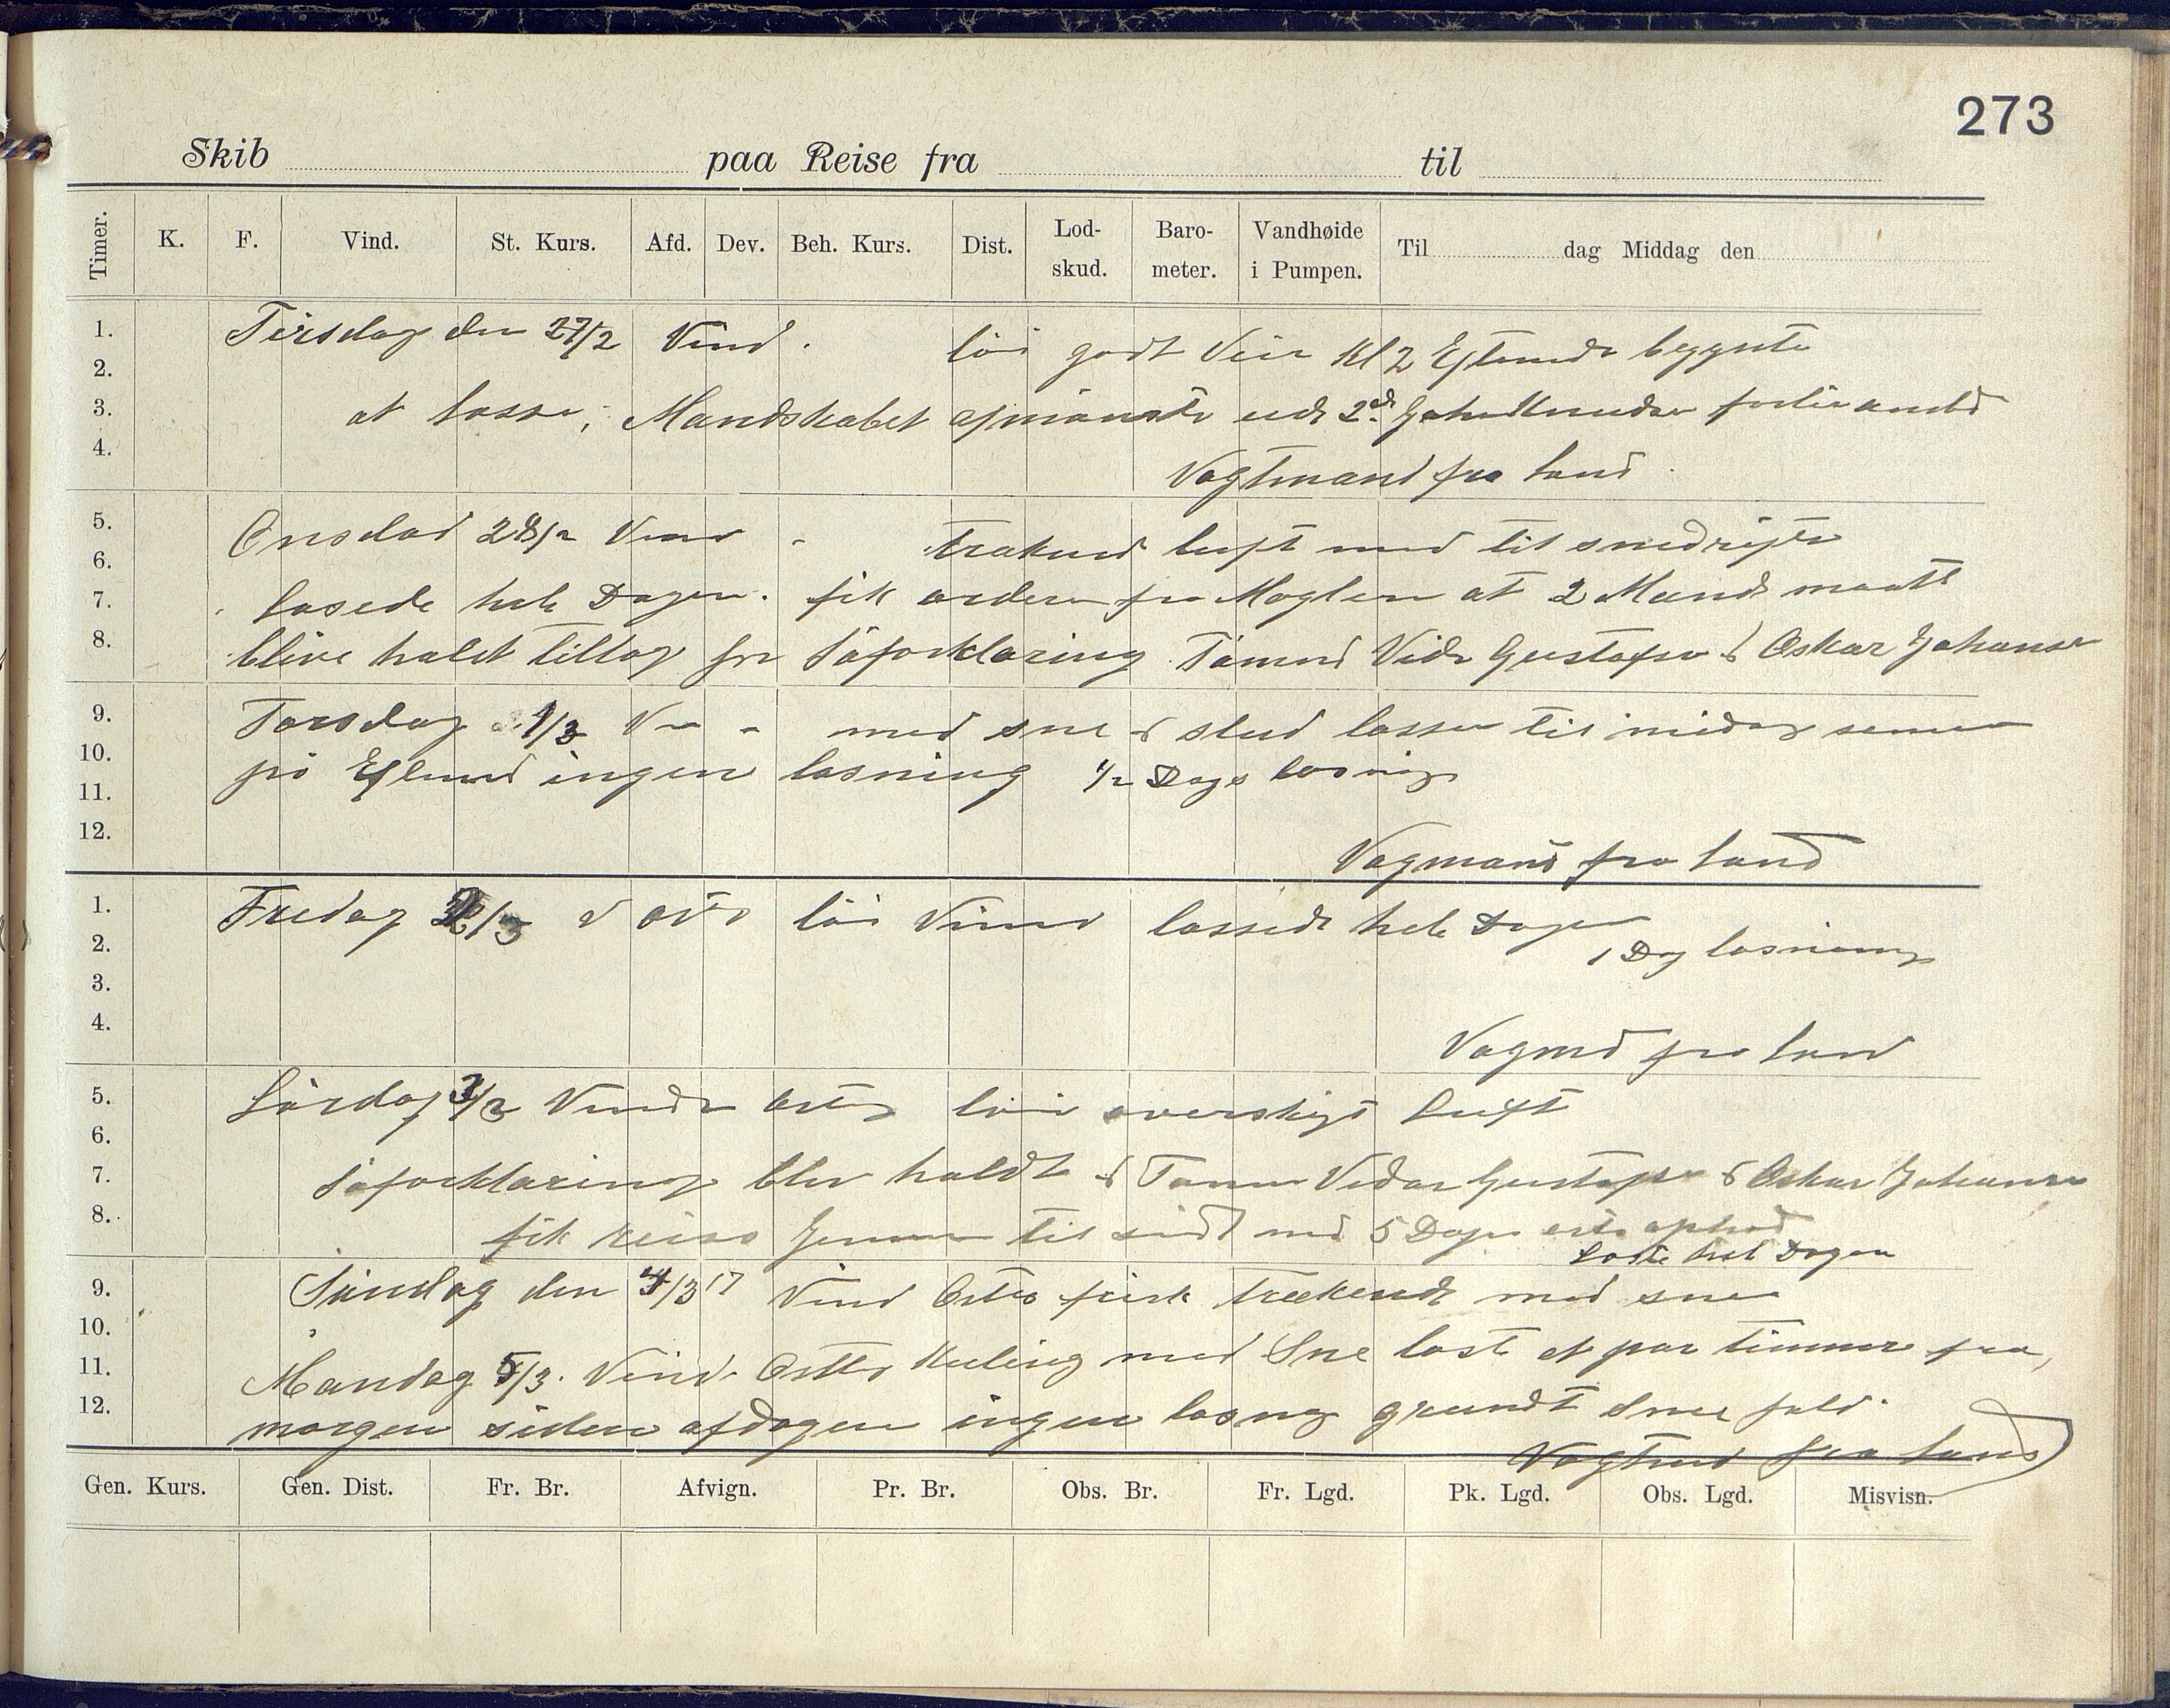 273
Skib paa Reise fra til
Timer. K. F. Vind. St. Kurs. Afd. Dev. Beh. Kurs. Dist. Lod-skud. Baro-meter. Vandhøide i Pumpen. Til dag Middag den
1.
2.
3.
4.
Tirsdag den 27/2 Vind. löi godt Veir Kl 2 Eftemd begynte
at losse; Mandskabet afmönste
Vagtmand fra land.
5.
6.
7.
8.
Onsdad 28/2 Vind - luft med til snedrifte
losede hele Dagen. fik orderen fra Mægleren at 2 Mand maatte
blive haldt tilbag for Söforklaring Tömmd Vidr Gustafsen & Oskar Johansen
9.
10.
11.
12.
Torsdag 1/3 V - med sne & slud losser til midag senere
på Eftmd ingen losning 1/2 Dags losning
Vagmand fra land
1.
2.
3.
4.
Fredag 2/3 löi Vind lossede hele Dagen
1 Dag losning
Vagmd fra land
5.
6.
7.
8.
Lördag 3/3 Vinden östl löi overskyet Luft
Söforklaring blev holdt & Tømm Vidar Gustafsen & Oskar Johansen
fik reise hjem til med 5 Dages ophold
loste hele Dagen
9.
10.
11.
12.
Söndag den 4/3 17 Vind Östlig frisk trækkende med sne
Mandag 5/3. Vind. Östlig Kuling med Sne loste et par timmer fra
morgen siden af dagen ingen losng grundt Snee fald.
Vagtmd fra land
Gen. Kurs. Gen. Dist. Fr. Br. Afvign. Pr. Br. Obs. Br. Fr. Lgd. Pk. Lgd. Obs. Lgd. Misvisn.